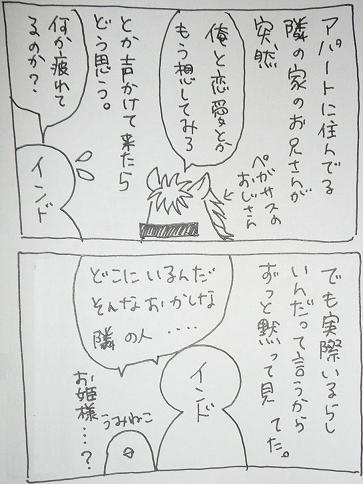 アパートに住んでる
隣の家のお兄さんが
突然
俺と恋愛とか
もう想してみろ
とか声かけて来たら
どう思う。
ペガサスの
おじさん
何か疲れて
るのか？
インド
でも実際いるらし
いんだって言うから
ずっと黙って見てた。
どこにいるんだ
そんなおかしな
隣の人‥‥‥
インド
うみねこ
お姫様…？